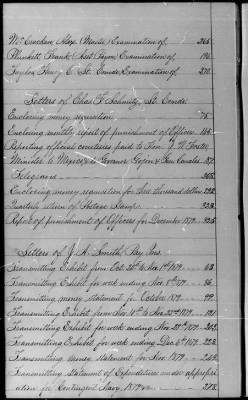 McEnchan, Alex (Mate) Examination of, 265.
Plunkett, Frank Asst Paym. Examination of, 190.
Taylor, Henry C. Lt. Comdr. Examination of, 270.
Letters of Chas. F. Schmitz, Lt. Comdr.
Enclosing money requisition, 75.
Enclosing monthly report of punishment of Officers 164.
Reporting official courtesies paid to Hon. J. W. Foster,
Minister to Mexico, & Governor &
Telegrams
Enclosing money requisition for three thousand dollars 292
Quarterly return of Postage Stamps 323
Report of punishment of Officers for December 1879. 325.
Letters of J. A. Smith Pay Ins.
Transmitting Exhibit from Oct. 26 to Nov. 1st 1879. 63.
Transmitting Exhibit for week ending Nov. 8th 1879. 86.
Transmitting money statement for October 1879. 99.
Transmitting Exhibit from Nov. to Nov. 1879. 121
Transmitting Exhibit for week ending Nov. 29th 1879.
Transmitting Exhibit for week ending Dec. 6th 1879. 223.
Transmitting money statement for Nov. 1879. 259.
Transmitting Statement of Expenditures under appropri-
ation for Contingent Navy, 278.